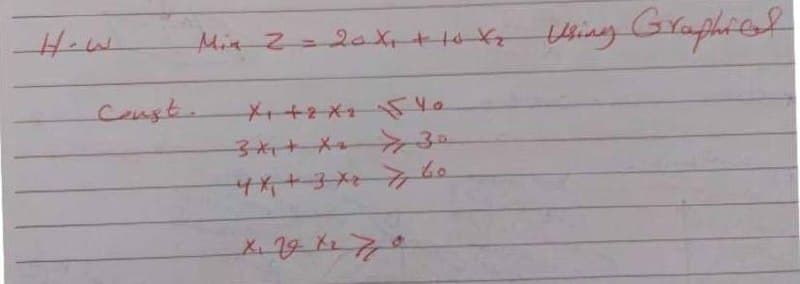 H.W Min Z = 20 X₁ + 10 X₂ Using Graphical
Const. X₁ + 2 X₂ ≤ 40
3 X₁ + X₂ ≥ 30
4 X₁ + 3 X₂ ≥ 60
X₁ , X₂ ≥ 0